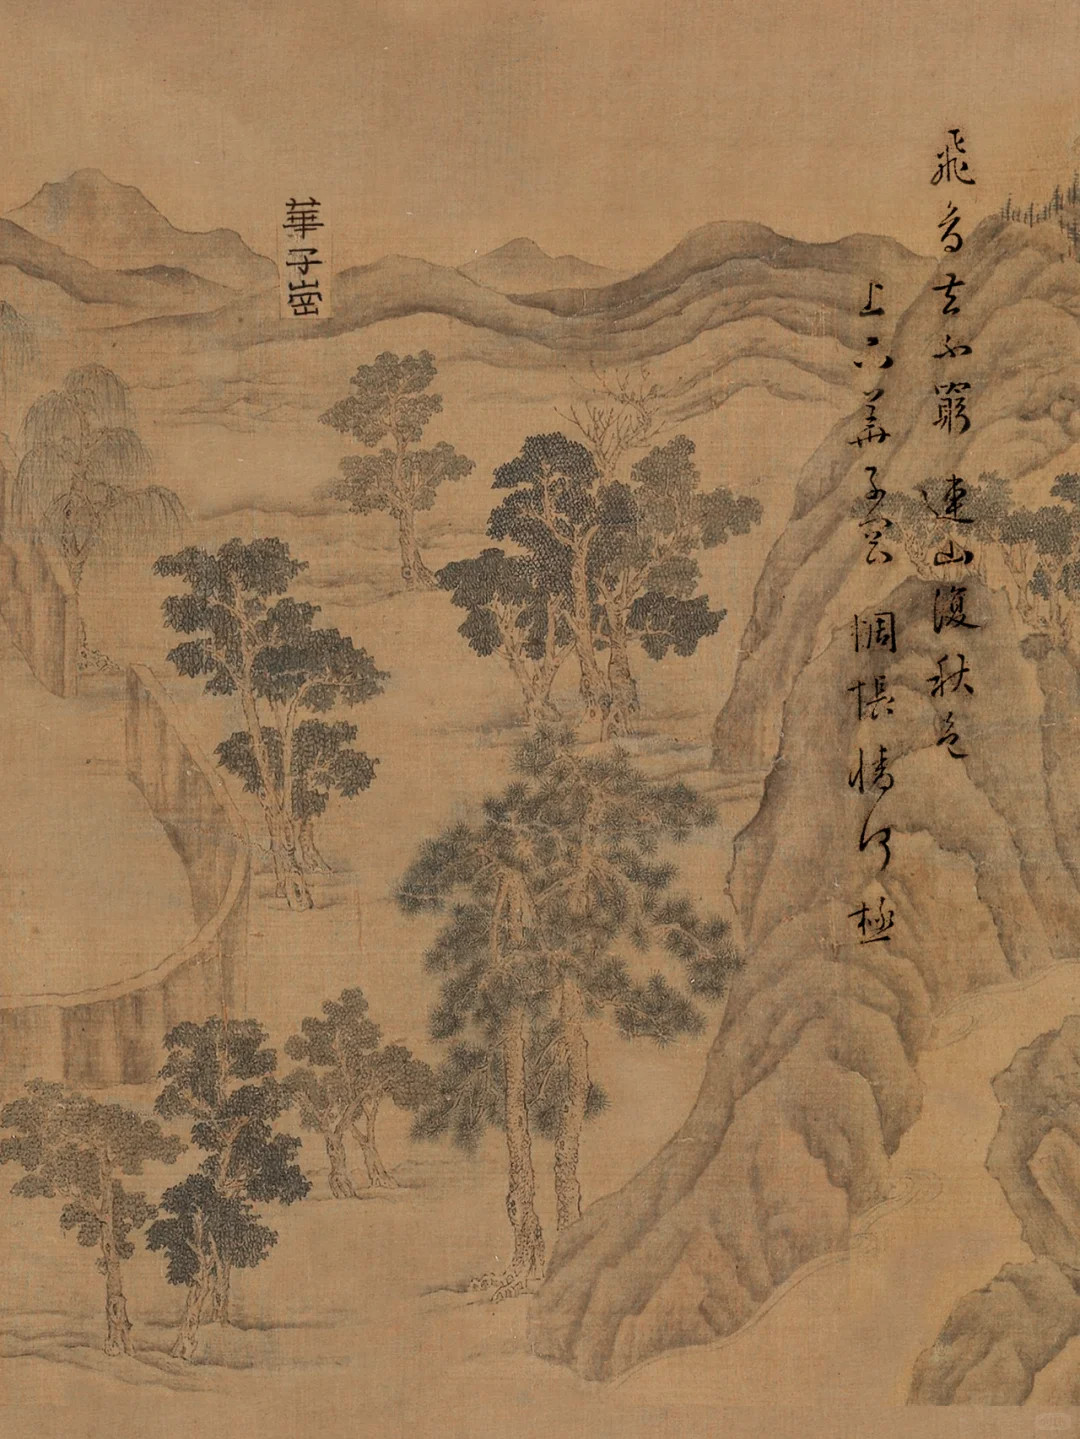 飛鳥去不窮 連山復秋色
上下華子岡 惆悵情何極
華子崗